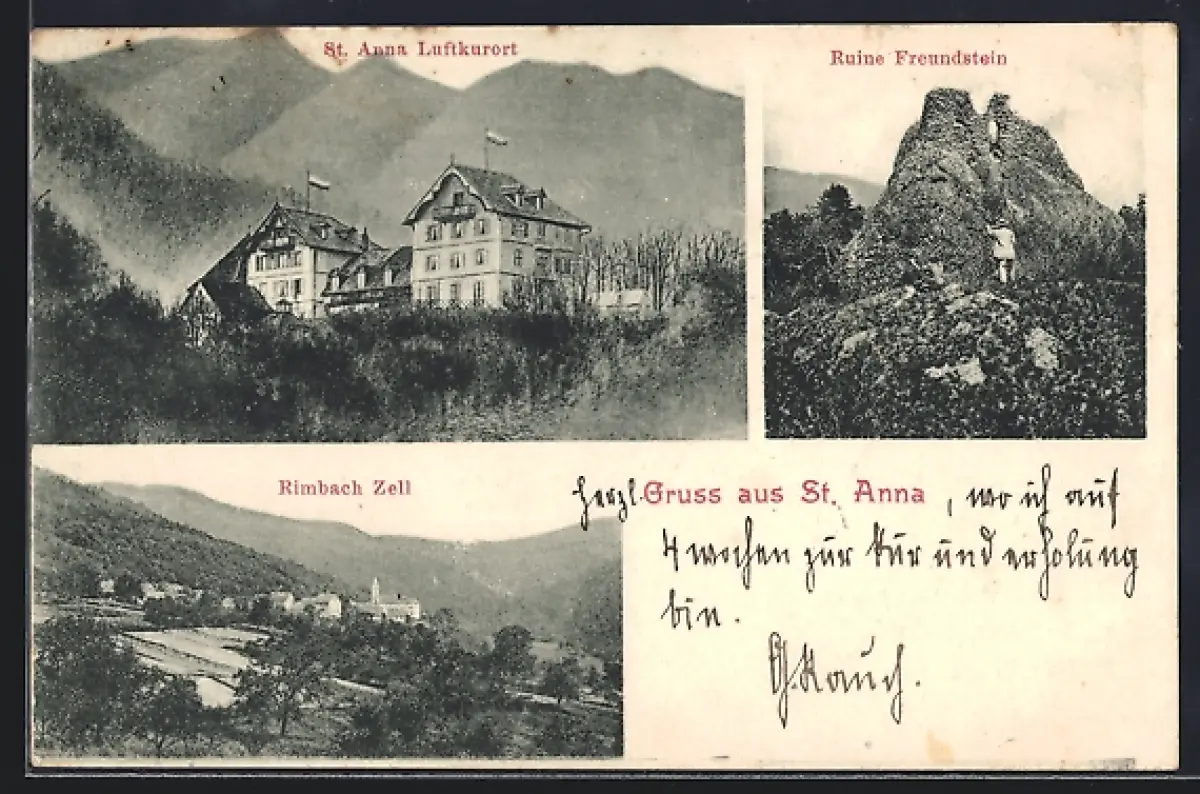 St. Anna Luftkurort
Ruine Freundstein
Rimbach Zell
herzl. Gruss aus St. Anna, wo ich auf
4 wochen zur Kur und erholung
bin.
G. Rauch.